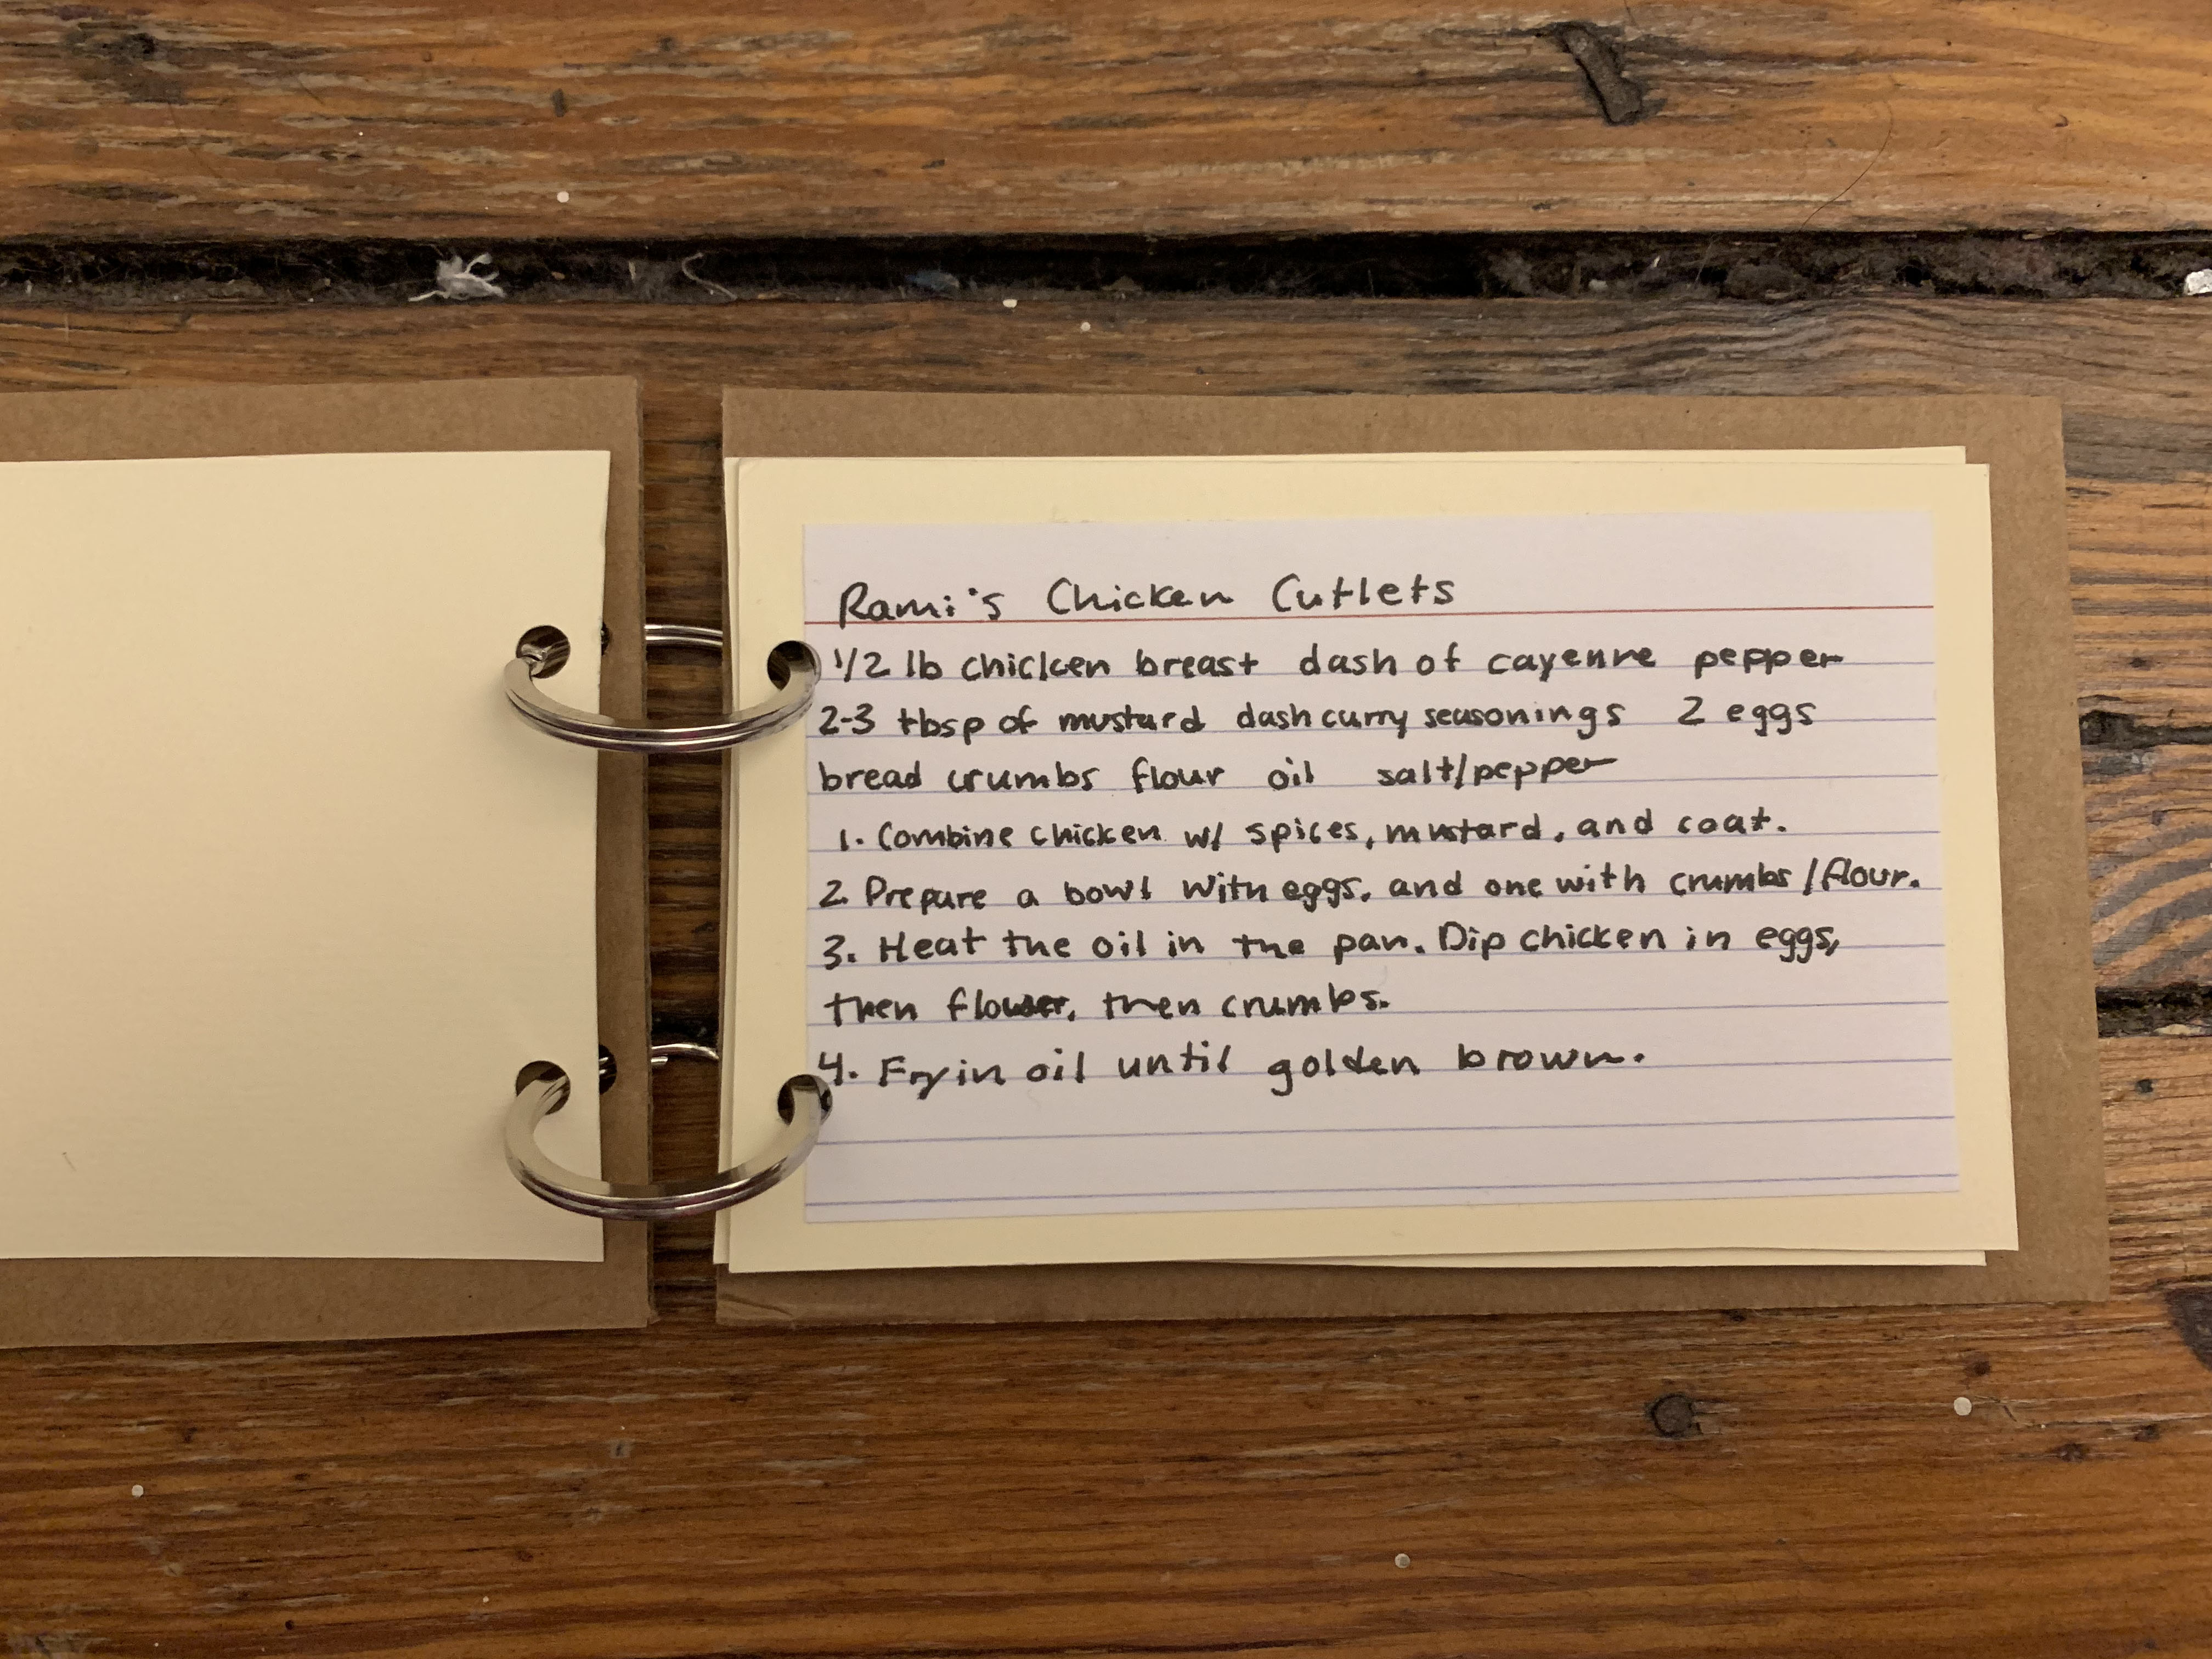 Rami's Chicken Cutlets
1/2 lb chicken breast dash of cayenne pepper
2-3 tbsp of mustard dash curry seasonings 2 eggs
bread crumbs flour oil salt/pepper
1. Combine chicken w/ spices, mustard, and coat.
2. Prepare a bowl with eggs, and one with crumbs/flour.
3. Heat the oil in the pan. Dip chicken in eggs,
then flower, then crumbs.
4. Fry in oil until golden brown.